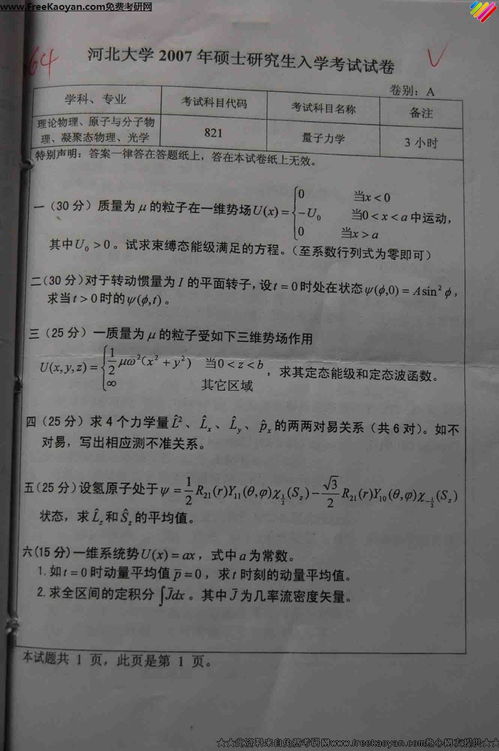 www.FreeKaoyan.com免费考研网
64
河北大学 2007 年硕士研究生入学考试试卷
卷别：A
学科、专业 考试科目代码 考试科目名称 备注
理论物理、原子与分子物理、凝聚态物理、光学 821 量子力学 3 小时
特别声明：答案一律答在答题纸上，答在本试卷纸上无效。
一（30 分）质量为 μ 的粒子在一维势场 U(x) = { 0 当x < 0
-U₀ 当0 < x < a 中运动，
0 当x > a
其中 U₀ > 0 。试求束缚态能级满足的方程。（至系数行列式为零即可）
二（30 分）对于转动惯量为 I 的平面转子，设 t = 0 时处在状态 ψ(ϕ,0) = A sin² ϕ ，
求当 t > 0 时的 ψ(ϕ,t) 。
三（25 分）一质量为 μ 的粒子受如下三维势场作用
U(x, y, z) = { 1/2 μω²(x² + y²) 当0 < z < b
∞ 其它区域 ，求其定态能级和定态波函数。
四（25 分）求 4 个力学量 L̂²、L̂ₓ、L̂_y、p̂ₓ 的两两对易关系（共 6 对）。如不
对易，写出相应测不准关系。
五（25 分）设氢原子处于 ψ = 1/2 R₂₁(r)Y₁₁(θ,φ)χ_{1/2}(S_z) − √3/2 R₂₁(r)Y₁₀(θ,φ)χ_{-1/2}(S_z)
状态，求 L̂_z 和 Ŝ_z 的平均值。
六（15 分）一维系统势 U(x) = ax ，式中 a 为常数。
1. 如 t = 0 时动量平均值 p̄ = 0 ，求 t 时刻的动量平均值。
2. 求全区间的定积分 ∫J̄dx 。其中 J̄ 为几率流密度矢量。
本试题共 1 页，此页是第 1 页。
★★此资料来自免费考研网www.freekaoyan.com热心网友提供★★